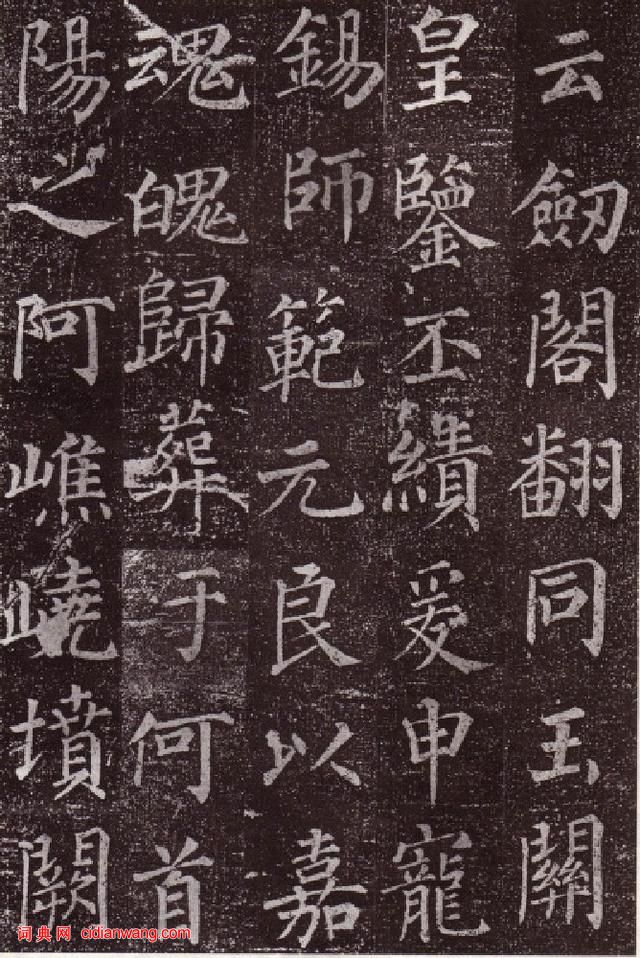 云劒閣翻同玉關
皇鑒丕績爰申寵
錫師範元良以嘉
魂魄歸葬于何首
陽之阿嶕嶢墳闕
词典网 cidianwang.com